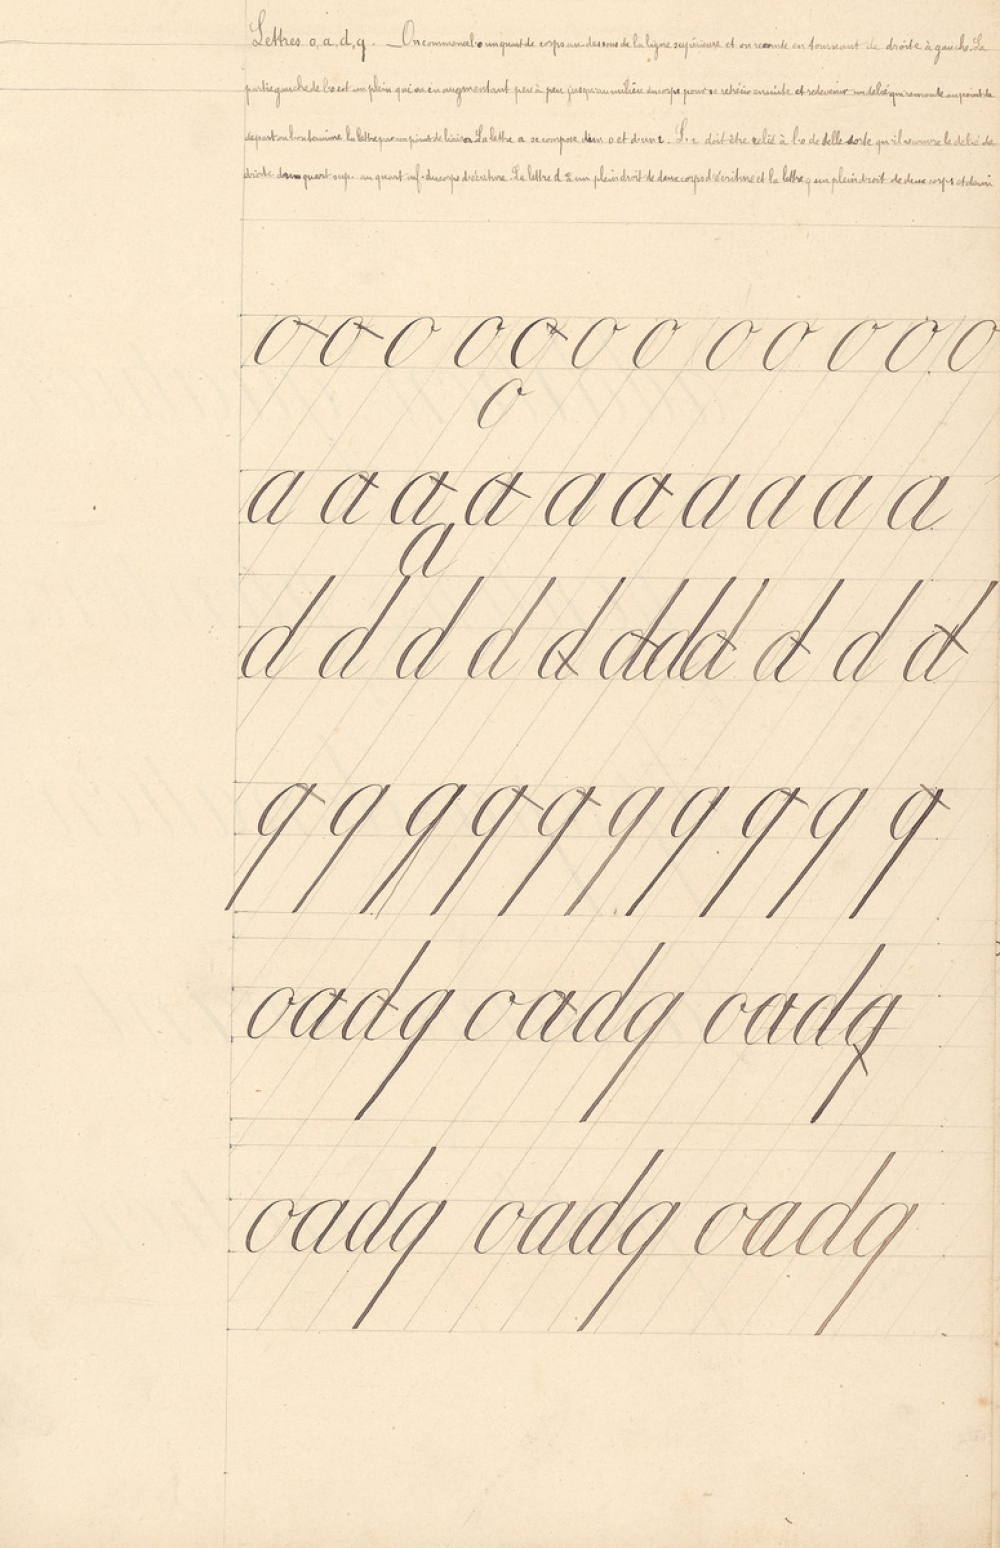 Lettres o, a, d, q. _ On commence l'o un quart de corps au-dessous de la ligne supérieure et on remonte en tournant de droite à gauche. La
partie gauche de l'o est un plein qui va en augmentant peu à peu jusqu'au milieu du corps pour se rétrécir ensuite et redevenir un délié qui remonte au point de
départ où l'on termine la lettre par un point de liaison. La lettre a se compose d'un o et d'un ı. L'ı doit être relié à l'o de telle sorte qu'il recouvre le délié de
droite d'un quart sup. au quart inf. du corps d'écriture. La lettre d a un plein droit de deux corps d'écriture et la lettre q un plein droit de deux corps et demi
o o o o o o o o o o o o
o
a a a a a a a a a a
a
d d d d d d d d d d d
q q q q q q q q q q
oadq oadq oadq
oadq oadq oadq